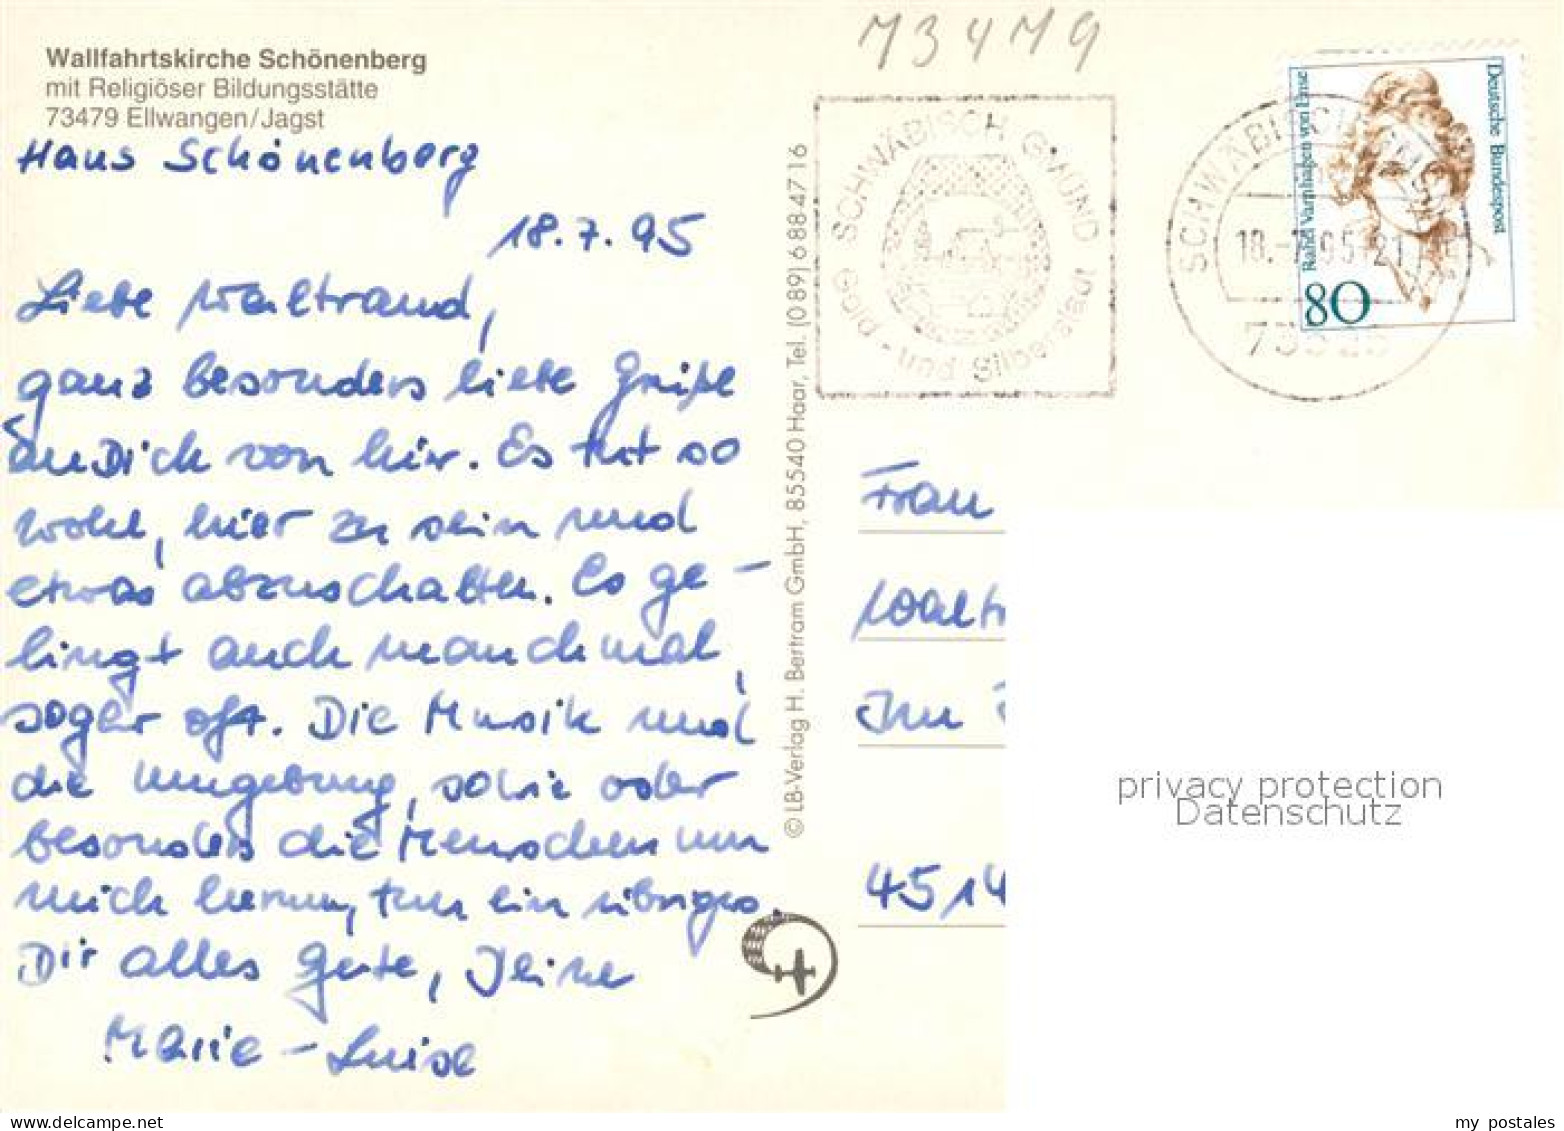 73479
Wallfahrtskirche Schönenberg
mit Religiöser Bildungsstätte
73479 Ellwangen/Jagst
Haus Schönenberg
18.7.95
Liebe Waltraud,
ganz besonders liebe Grüße
an Dich von hier. Es tut so
wohl, hier zu sein und
etwas abzuschalten. Es ge-
lingt auch manchmal,
sogar oft. Die Musik und
die Umgebung, sowie oder
besonders die Menschen um
mich herum, tun ein übriges.
Dir alles Gute, Deine
Marie-Luise
© LB-Verlag H. Bertram GmbH, 85540 Haar, Tel. (089) 6 88 47 16
SCHWÄBISCH GMÜND
Gold- und Silberstadt
SCHWÄBISCH
18.-7.95-21
Deutsche Bundespost
Rahel Varnhagen von Ense
80
Frau
Waltr
Im
4514
privacy protection
Datenschutz
my postales